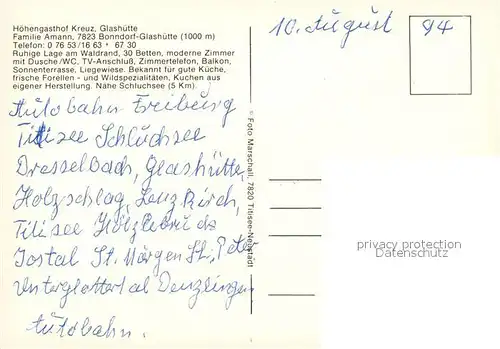 Höhengasthof Kreuz, Glashütte
Familie Amann, 7823 Bonndorf-Glashütte (1000 m)
Telefon: 0 76 53/16 63 + 67 30
Ruhige Lage am Waldrand, 30 Betten, moderne Zimmer
mit Dusche/WC, TV-Anschluß, Zimmertelefon, Balkon,
Sonnenterrasse, Liegewiese. Bekannt für gute Küche,
frische Forellen- und Wildspezialitäten, Kuchen aus
eigener Herstellung. Nähe Schluchsee (5 Km).
10. August 94
Autobahn Freiburg
Titisee Schluchsee
Dresselbach, Glashütte,
Holzschlag, Lenzkirch,
Titisee Hölzlebruck
Jostal St. Märgen St. Peter
Unterglottertal Denzlingen
Autobahn.
© Foto Marschall, 7820 Titisee-Neustadt
privacy protection
Datenschutz